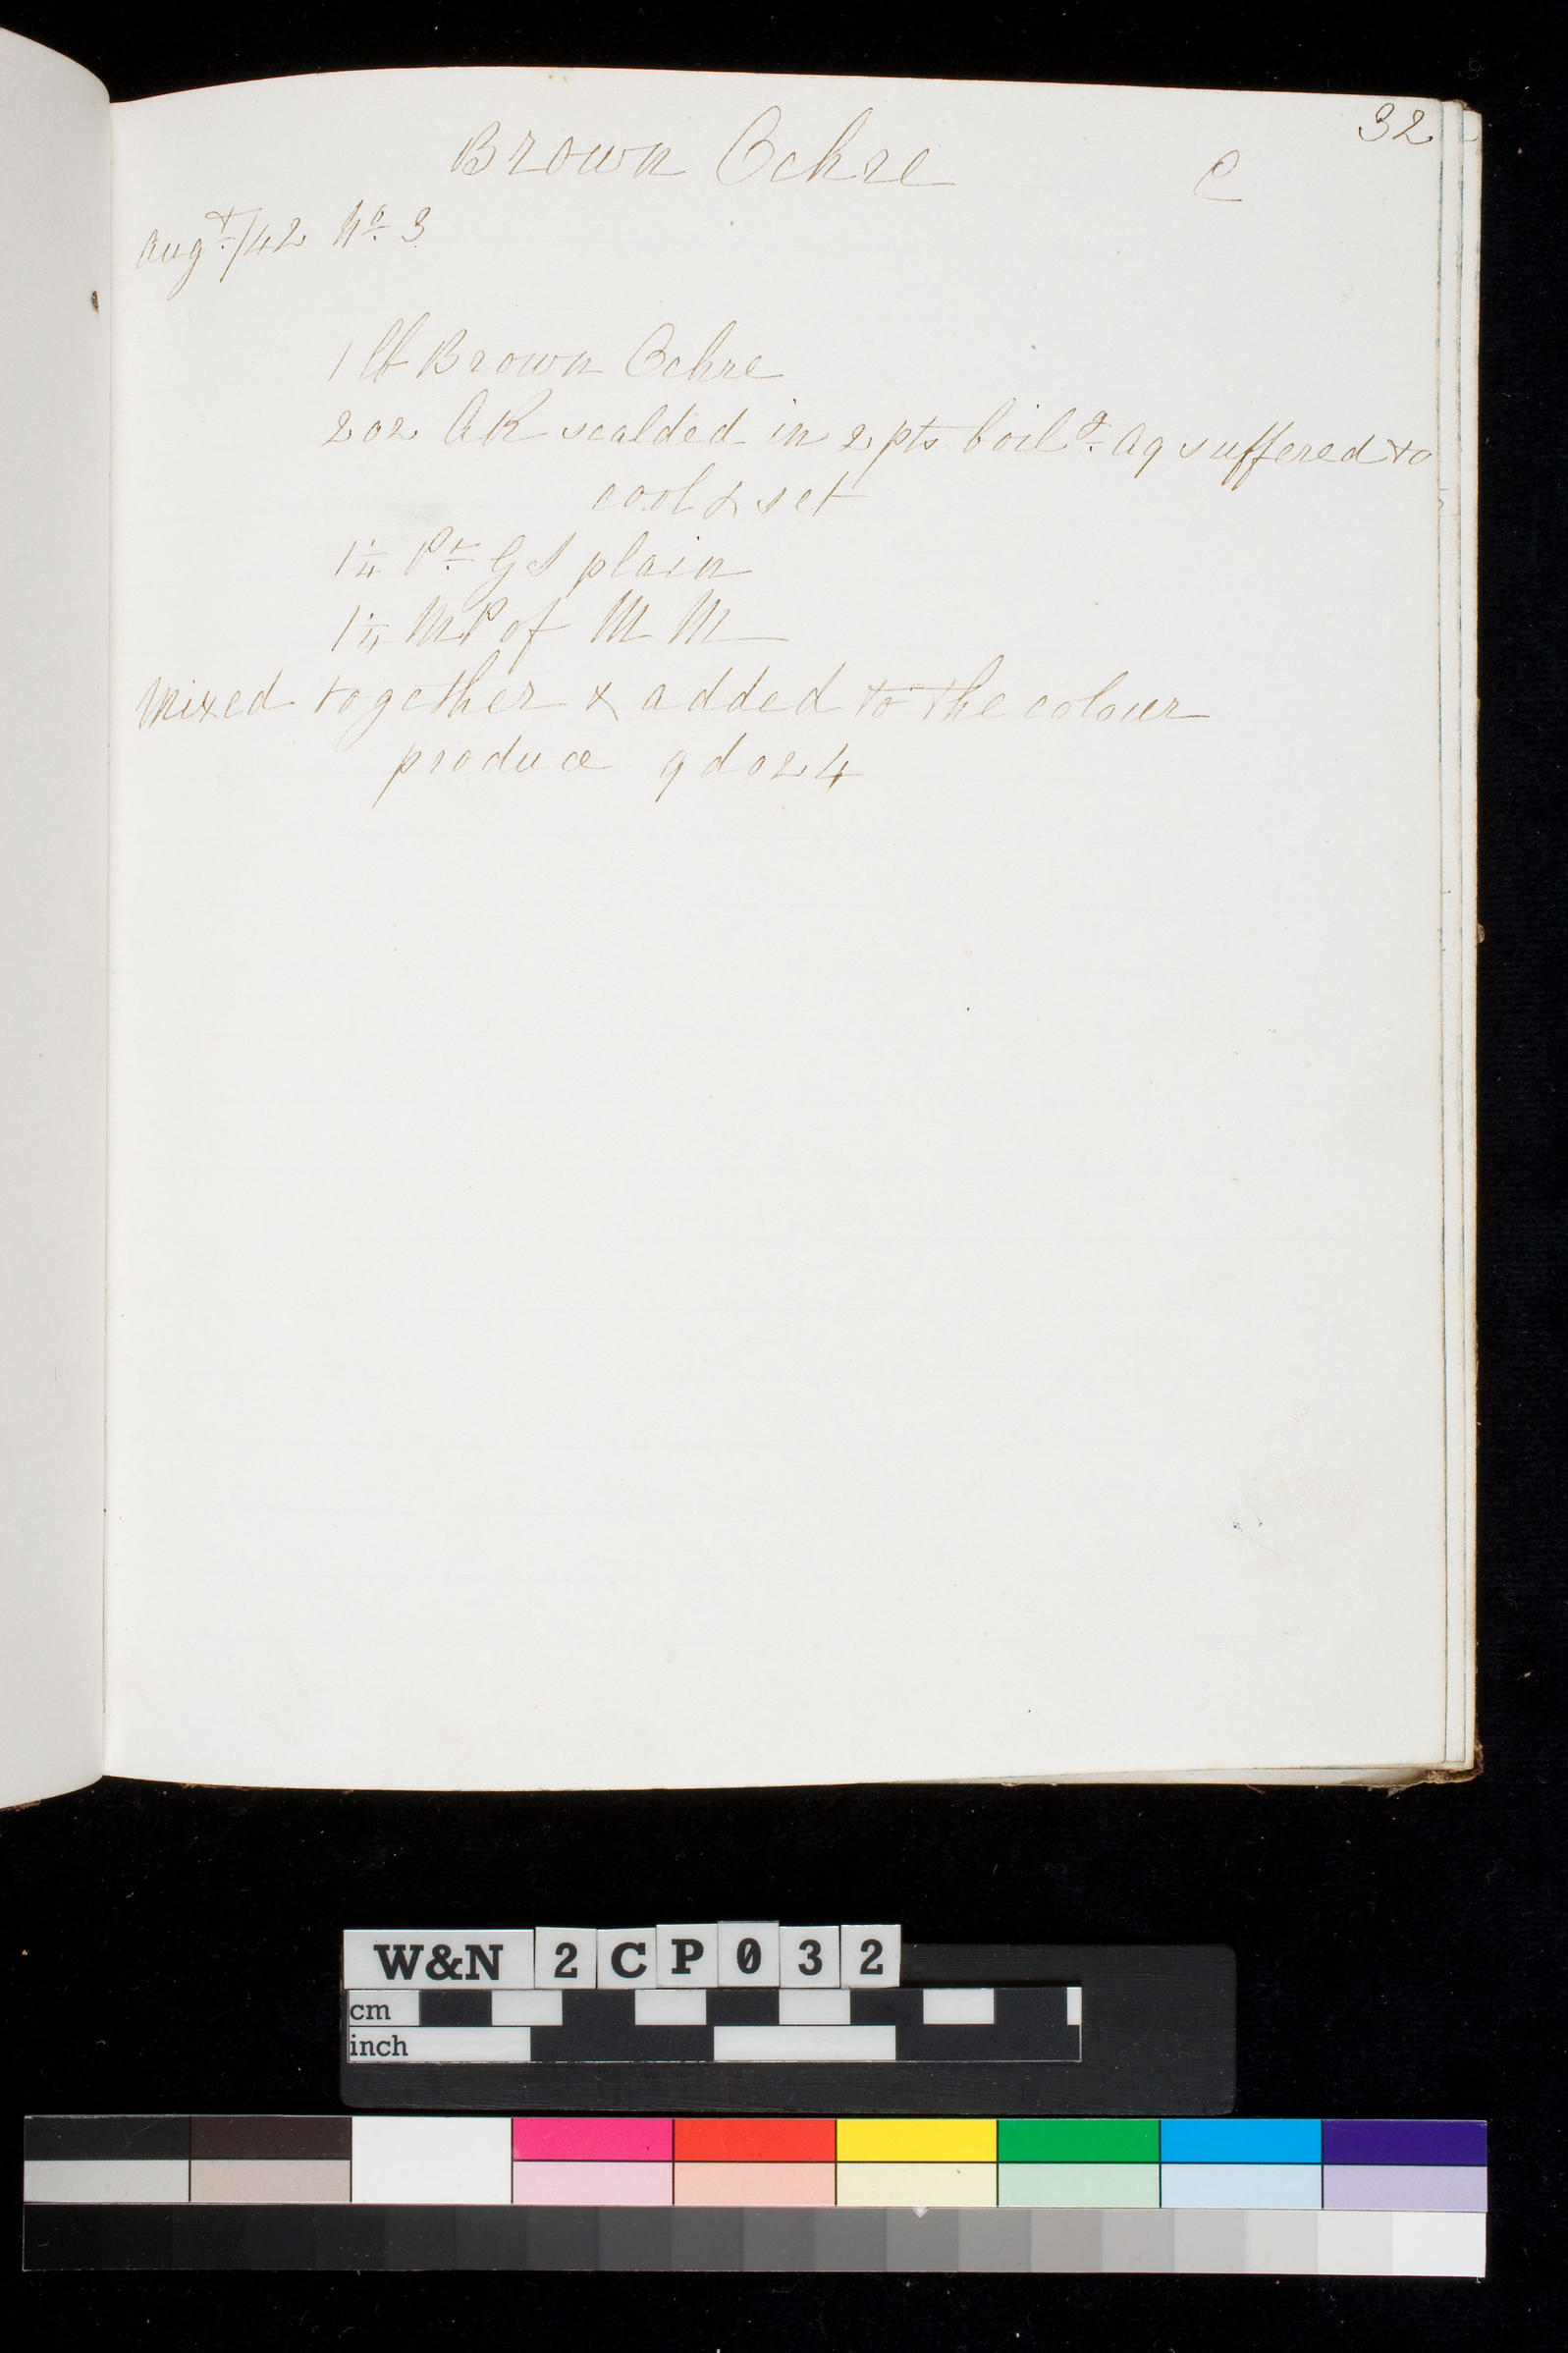 32
Brown Ochre C
Augt/42 No 3
1 lb Brown Ochre
2 oz AR scalded in 2 pts boilg Aq suffered to
cool & set
1 1/4 Pt GS plain
1 1/4 MP of MM
Mixed together & added to the colour
produce 9 doz 4
W&N 2CP032
cm
inch